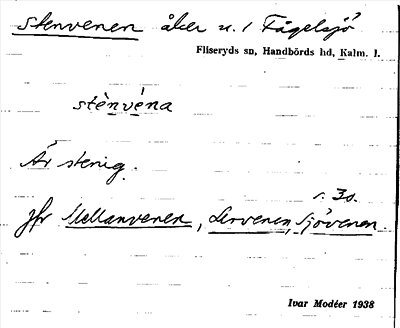 Stenvenen åker n. 1 Fågelsjö
Fliseryds sn, Handbörds hd, Kalm. l.
stènvéna
Är stenig.
s. 3o.
Jfr Mellanvenen, Lervenen, Sjövenen.
Ivar Modéer 1938